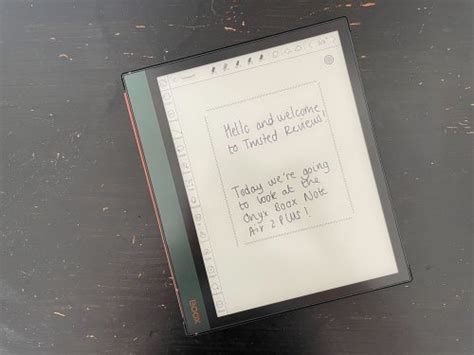 Hello and welcome
to Trusted Reviews!
Today we're going
to look at the
Onyx Boox Note
Air 2 PLUS!
BOOX